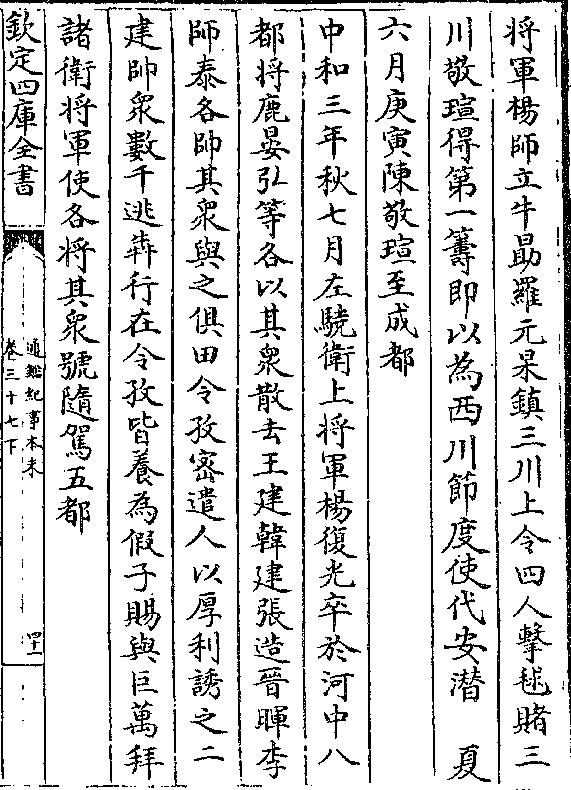 将軍楊師立牛勗羅元杲鎮三川上令四人擊毬賭三
川敬瑄得第一籌即以為西川節度使代安潜　夏
六月庚寅陳敬瑄至成都
中和三年秋七月左驍衛上将軍楊復光卒於河中八
都将鹿晏弘等各以其衆散去王建韓建張造晉暉李
師泰各帥其衆與之俱田令孜密遣人以厚利誘之二
建帥衆數千逃奔行在令孜皆養為假子賜與巨萬拜
諸衛将軍使各将其衆號隨駕五都
欽定四庫全書
通鑑紀事本末
卷三十七下
四十一